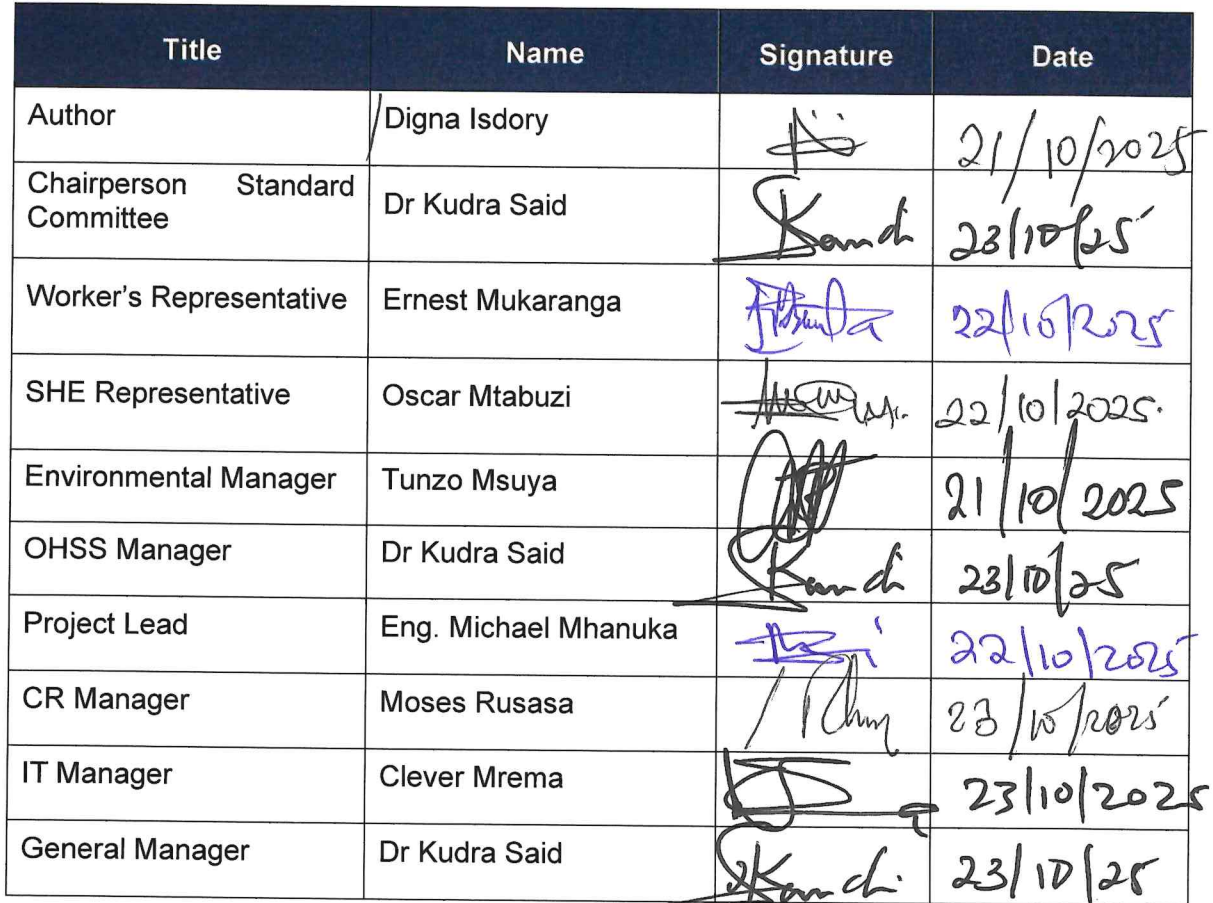 Title Name Signature Date
Author Digna Isdory 21/10/2025
Chairperson Standard
Committee Dr Kudra Said 23/10/25
Worker's Representative Ernest Mukaranga 22/10/2025
SHE Representative Oscar Mtabuzi 22/10/2025.
Environmental Manager Tunzo Msuya 21/10/2025
OHSS Manager Dr Kudra Said 23/10/25
Project Lead Eng. Michael Mhanuka 22/10/2025
CR Manager Moses Rusasa 23/10/2025
IT Manager Clever Mrema 23/10/2025
General Manager Dr Kudra Said 23/10/25